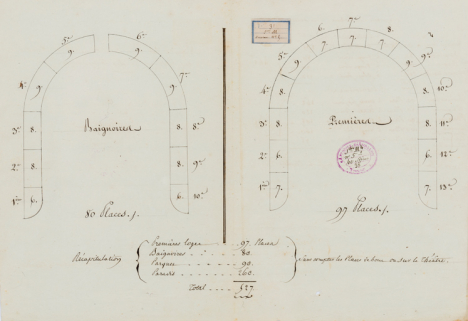 5e. 6e.
4e. 9. 9. 7e.
9. 9.
3e. 8. Baignoires. 8. 8e.
2e. 8. 8. 9e.
1re 6. 6. 10e.
80 Places.
7e.
6e. 8.
5e. 9. 7. 7. 7. 9. 9e.
4e. 8. 8. 10e.
3e. 8. Premières. 8. 11e.
2e. 6. 6. 12e.
1re 7. 7. 13e.
97 Places.
Récapitulation
Premières loges 97. Places
Baignoires 80.
Parquet 90.
Parterre 260.
Total 527.
sans compter les Places ou sur le Théâtre.